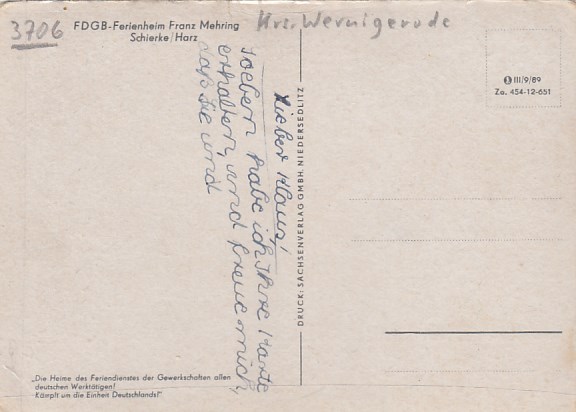 3706
FDGB-Ferienheim Franz Mehring
Schierke/Harz
Krs. Wernigerode
III/9/89
Za. 454-12-651
Lieber Klaus!
Soeben habe ich Ihre Karte
erhalten, und freue mich,
daß Sie und
DRUCK: SACHSENVERLAG GMBH. NIEDERSEDLITZ
„Die Heime des Feriendienstes der Gewerkschaften allen
deutschen Werktätigen!
Kämpft um die Einheit Deutschlands!"